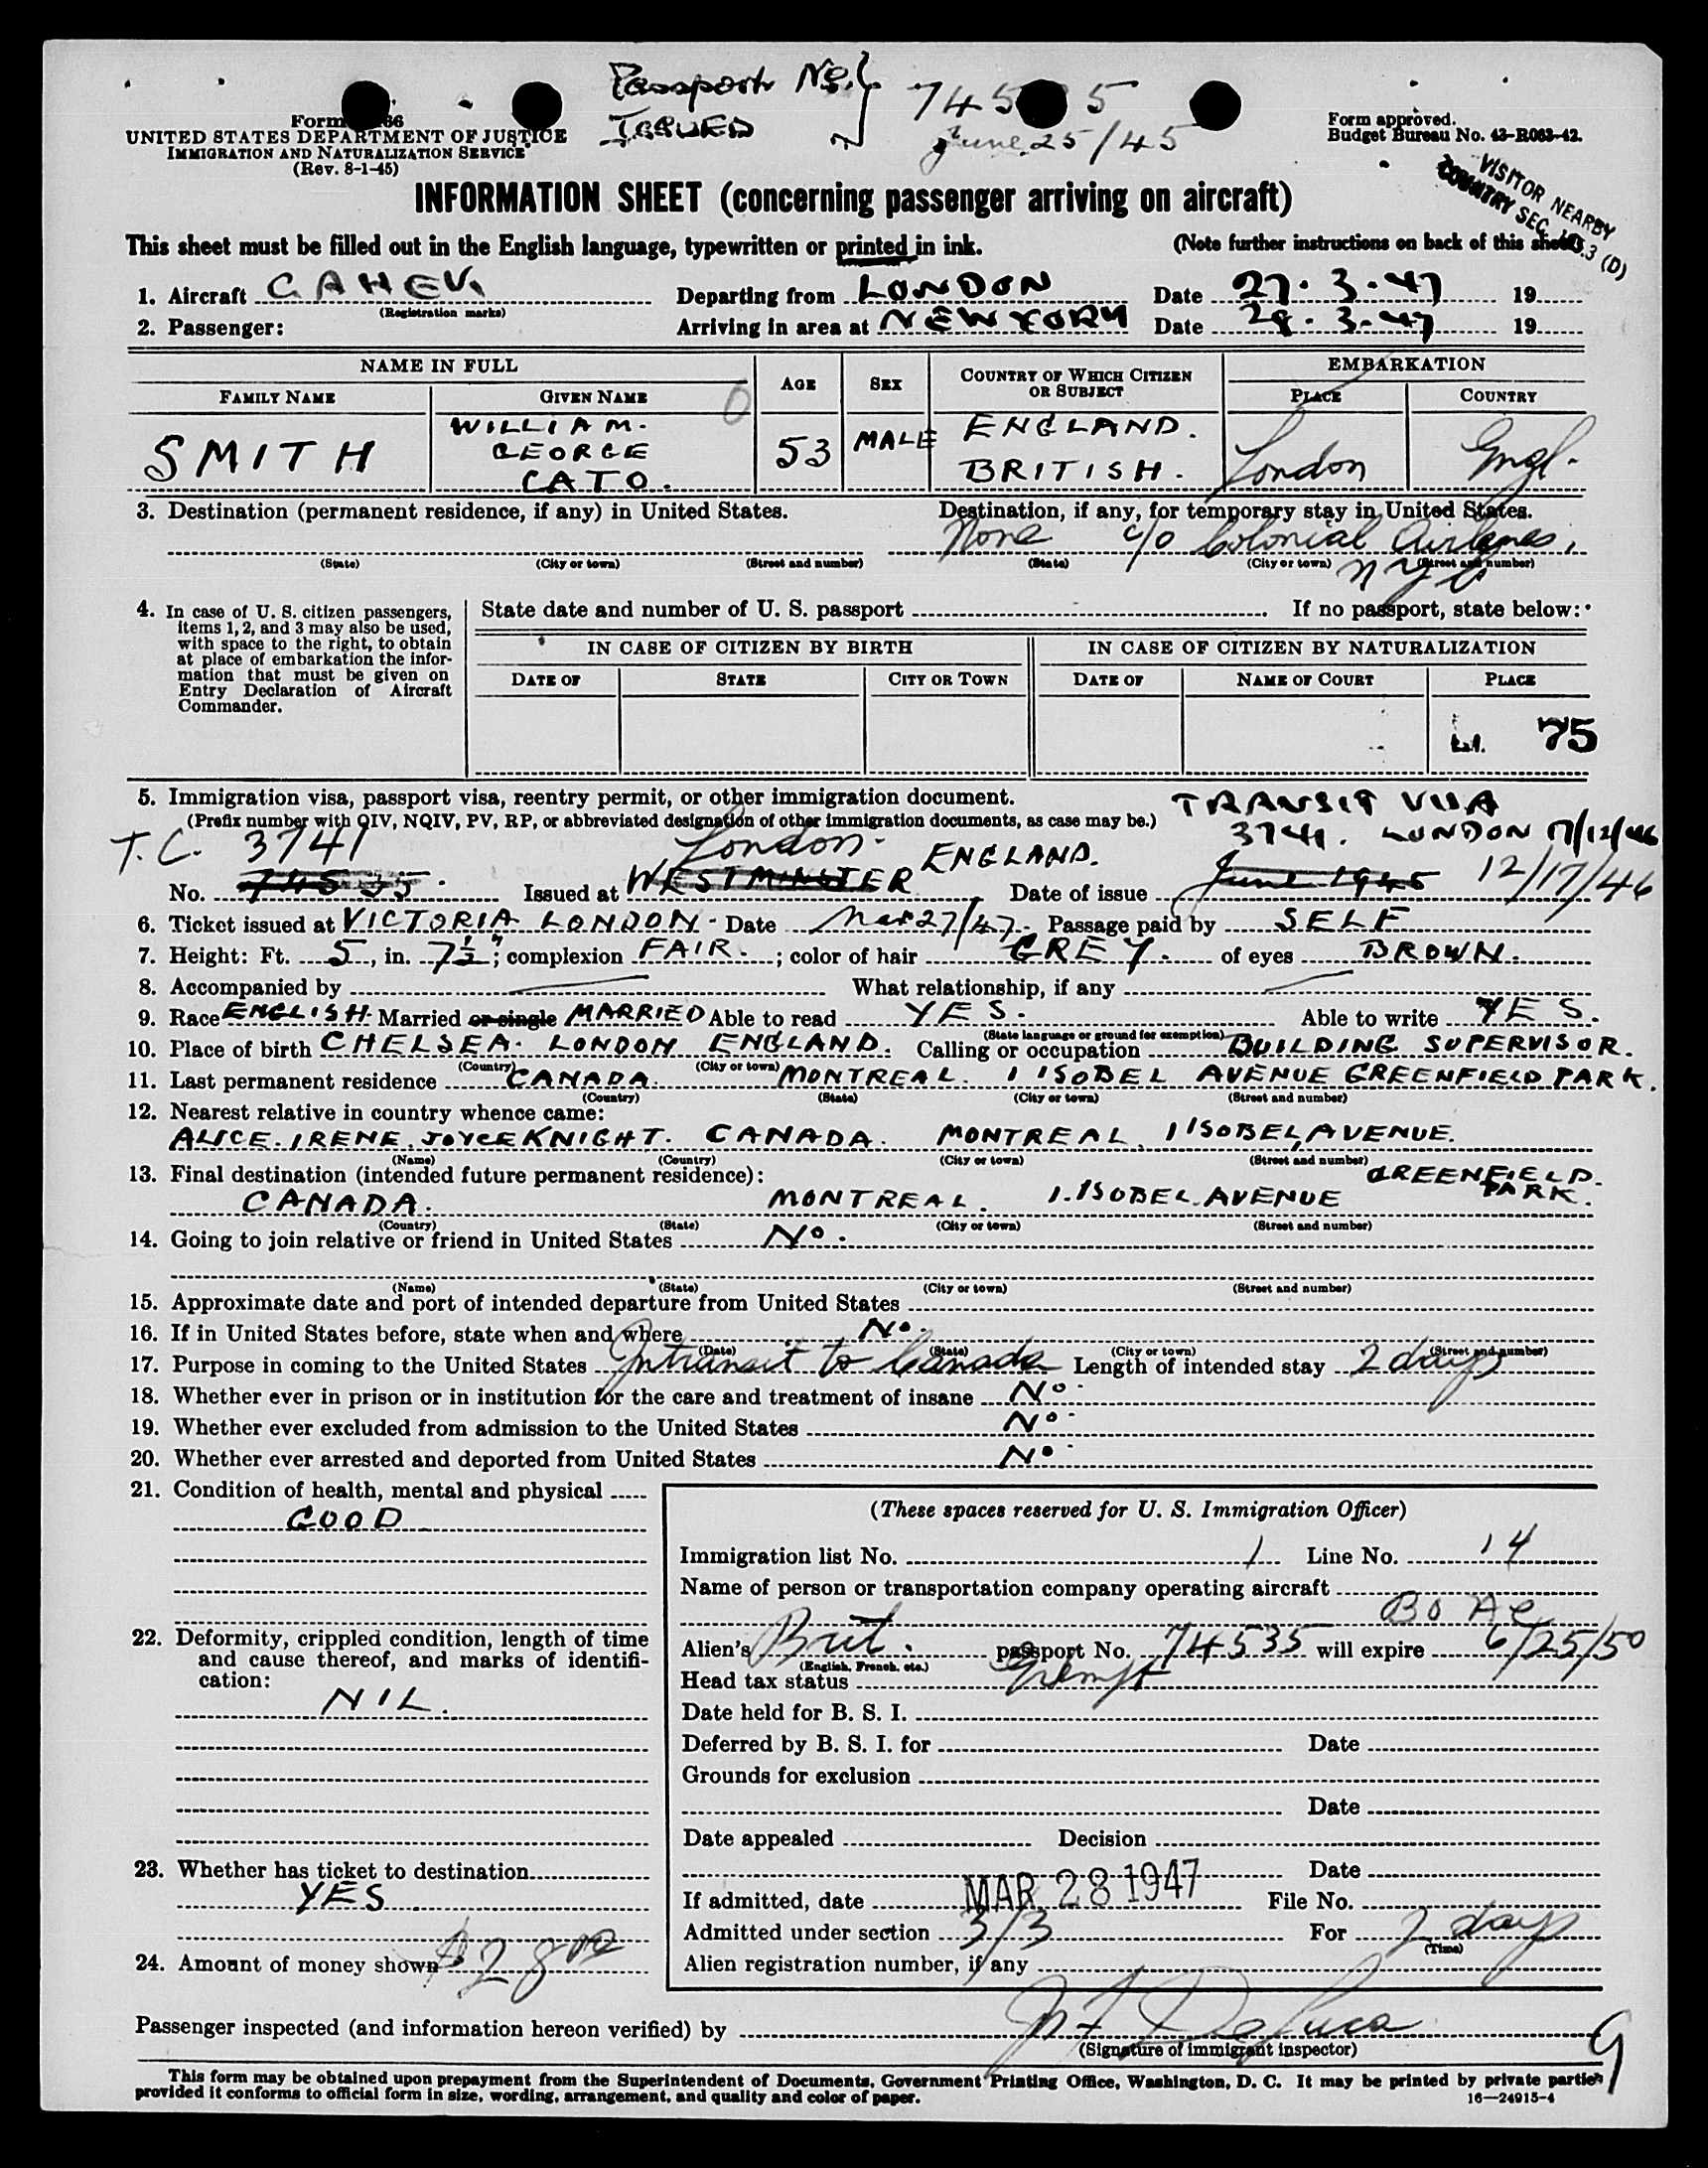 Passport No. } 745 5
ISSUED June 25/45
Form 66
UNITED STATES DEPARTMENT OF JUSTICE
IMMIGRATION AND NATURALIZATION SERVICE
(Rev. 8-1-45)
Form approved.
Budget Bureau No. 43-R063-42.
VISITOR NEARBY
COUNTRY SEC. 3 (D)
INFORMATION SHEET (concerning passenger arriving on aircraft)
This sheet must be filled out in the English language, typewritten or printed in ink. (Note further instructions on back of this sheet)
1. Aircraft GAHEV. Departing from LONDON Date 27.3.47 19
(Registration marks)
2. Passenger: Arriving in area at NEW YORK Date 28.3.47 19
NAME IN FULL AGE SEX COUNTRY OF WHICH CITIZEN OR SUBJECT EMBARKATION
FAMILY NAME GIVEN NAME PLACE COUNTRY
SMITH WILLIAM. GEORGE CATO. 53 MALE ENGLAND. BRITISH. London Engl.
3. Destination (permanent residence, if any) in United States. Destination, if any, for temporary stay in United States.
None c/o Colonial Airlines, NYC
(State) (City or town) (Street and number) (State) (City or town) (Street and number)
4. In case of U. S. citizen passengers, items 1, 2, and 3 may also be used, with space to the right, to obtain at place of embarkation the information that must be given on Entry Declaration of Aircraft Commander.
State date and number of U. S. passport If no passport, state below:
IN CASE OF CITIZEN BY BIRTH IN CASE OF CITIZEN BY NATURALIZATION
DATE OF STATE CITY OR TOWN DATE OF NAME OF COURT PLACE
75
5. Immigration visa, passport visa, reentry permit, or other immigration document. TRANSIT VISA
(Prefix number with QIV, NQIV, PV, RP, or abbreviated designation of other immigration documents, as case may be.) 3741. LONDON 17/12/46
T.C. 3741 London. ENGLAND.
No. 74535. Issued at WESTMINSTER Date of issue June 1945 12/17/46
6. Ticket issued at VICTORIA LONDON - Date Mar 27/47 - Passage paid by SELF
7. Height: Ft. 5, in. 7½"; complexion FAIR. ; color of hair GREY. of eyes BROWN.
8. Accompanied by What relationship, if any
9. Race ENGLISH. Married or single MARRIED Able to read YES. Able to write YES.
(State language or ground for exemption)
10. Place of birth CHELSEA. LONDON ENGLAND. Calling or occupation BUILDING SUPERVISOR.
(Country) (City or town)
11. Last permanent residence CANADA. MONTREAL. 1 ISOBEL AVENUE GREENFIELD PARK.
(Country) (State) (City or town) (Street and number)
12. Nearest relative in country whence came:
ALICE. IRENE. JOYCE KNIGHT. CANADA. MONTREAL, 1 ISOBEL, AVENUE.
(Name) (Country) (City or town) (Street and number)
13. Final destination (intended future permanent residence): GREENFIELD PARK.
CANADA. MONTREAL. 1. ISOBEL AVENUE
(Country) (State) (City or town) (Street and number)
14. Going to join relative or friend in United States No.
(Name) (State) (City or town) (Street and number)
15. Approximate date and port of intended departure from United States
16. If in United States before, state when and where No.
(Date) (State) (City or town) (Street and number)
17. Purpose in coming to the United States Intransit to Canada Length of intended stay 2 days
18. Whether ever in prison or in institution for the care and treatment of insane No.
19. Whether ever excluded from admission to the United States No.
20. Whether ever arrested and deported from United States No.
21. Condition of health, mental and physical
GOOD
22. Deformity, crippled condition, length of time and cause thereof, and marks of identification:
NIL.
23. Whether has ticket to destination
YES
24. Amount of money shown $28 00
(These spaces reserved for U. S. Immigration Officer)
Immigration list No. 1 Line No. 14
Name of person or transportation company operating aircraft
BOAC
Alien's Brit. passport No. 74535 will expire 6/25/50
(English, French, etc.)
Head tax status Exempt
Date held for B. S. I.
Deferred by B. S. I. for Date
Grounds for exclusion
Date
Date appealed Decision
Date
If admitted, date MAR 28 1947 File No.
Admitted under section 3/3 For 2 days
(Time)
Alien registration number, if any
Passenger inspected (and information hereon verified) by
(Signature of immigrant inspector)
9
This form may be obtained upon prepayment from the Superintendent of Documents, Government Printing Office, Washington, D. C. It may be printed by private parties
provided it conforms to official form in size, wording, arrangement, and quality and color of paper. 16—24915-4